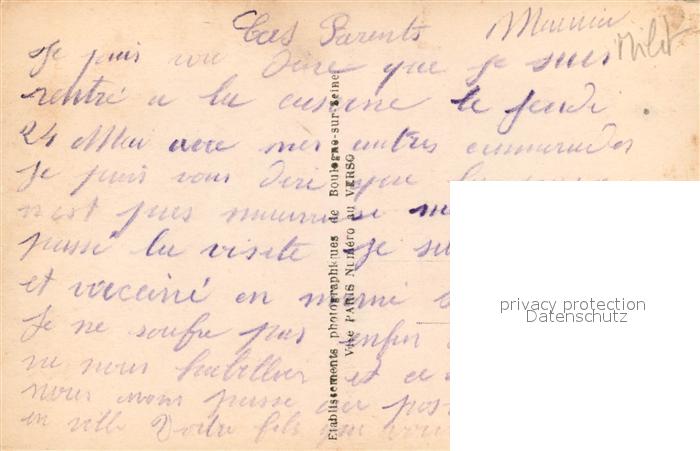 Cas Parents Maurice
Milit
Je puis vou Dire que je suis
rentré a la caserne le jeudi
24 Mai avec mes autres cammarades
Je puis vous dire que la
n'est pas mauvaise
passé la visite Je su
et vacciné en meme
Je ne soufre pas enfin
ne nous habiller et ce
nous avons passé au pos
en ville Votre fils qui vou
Etablissements photographiques de Boulogne-sur-Seine
Ville PARIS Numéro au VERSO
privacy protection
Datenschutz